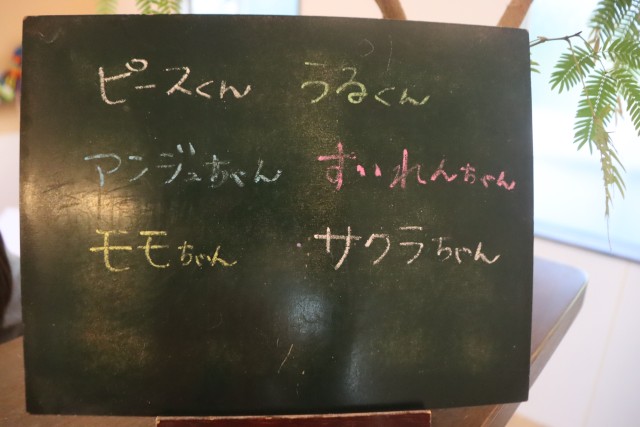 ピースくん うるくん
アンジュちゃん すいれんちゃん
モモちゃん サクラちゃん